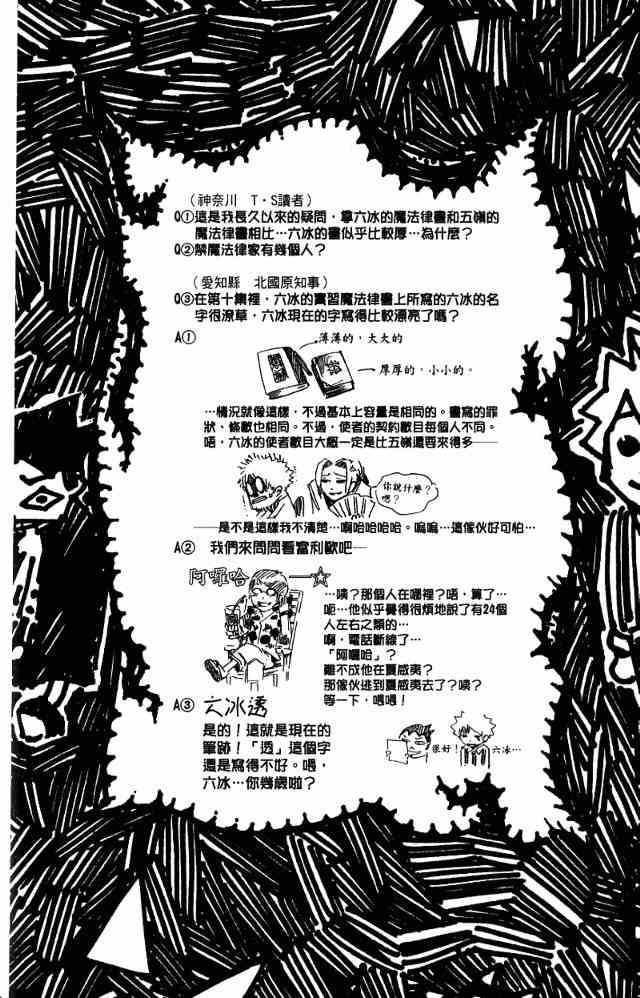 （神奈川　T・S讀者）
Q①這是我長久以來的疑問，拿六冰的魔法律書和五嶺的
魔法律書相比…六冰的書似乎比較厚…為什麼？
Q②禁魔法律家有幾個人？
（愛知縣　北國原知事）
Q③在第十集裡，六冰的實習魔法律書上所寫的六冰的名
字很潦草，六冰現在的字寫得比較漂亮了嗎？
A①
薄薄的，大大的
厚厚的，小小的。
…情況就像這樣，不過基本上容量是相同的。書寫的罪
狀、條數也相同。不過，使者的契約數目每個人不同。
唔，六冰的使者數目大概一定是比五嶺還要來得多──
你說什麼？
嗯？
──是不是這樣我不清楚…啊哈哈哈哈。嗚嗚…這傢伙好可怕…
A②　我們來問問看富利歐吧─
阿囉哈─☆
…咦？那個人在哪裡？唔，算了…
呃…他似乎覺得很煩地說了有24個
人左右之類的…
啊，電話斷線了…
「阿囉哈」？
難不成他在夏威夷？
那傢伙逃到夏威夷去了？咦？
等一下，喂喂！
A③ 六冰透
是的！這就是現在的
筆跡！「透」這個字
還是寫得不好。喂，
六冰…你幾歲啦？
很好！
六冰…